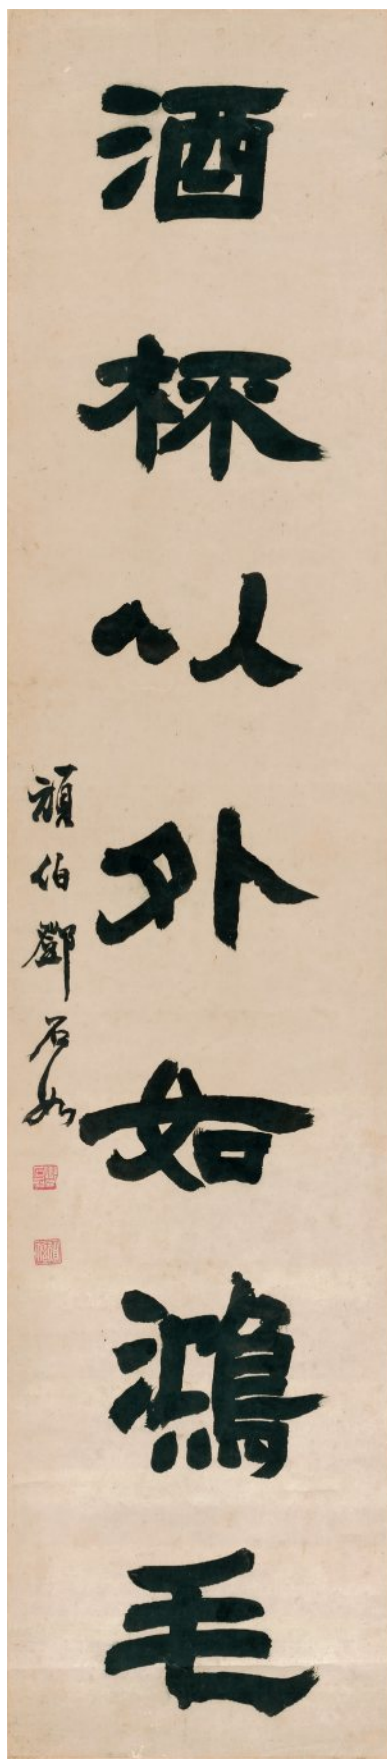 酒杯以外如鴻毛
頑伯鄧石如